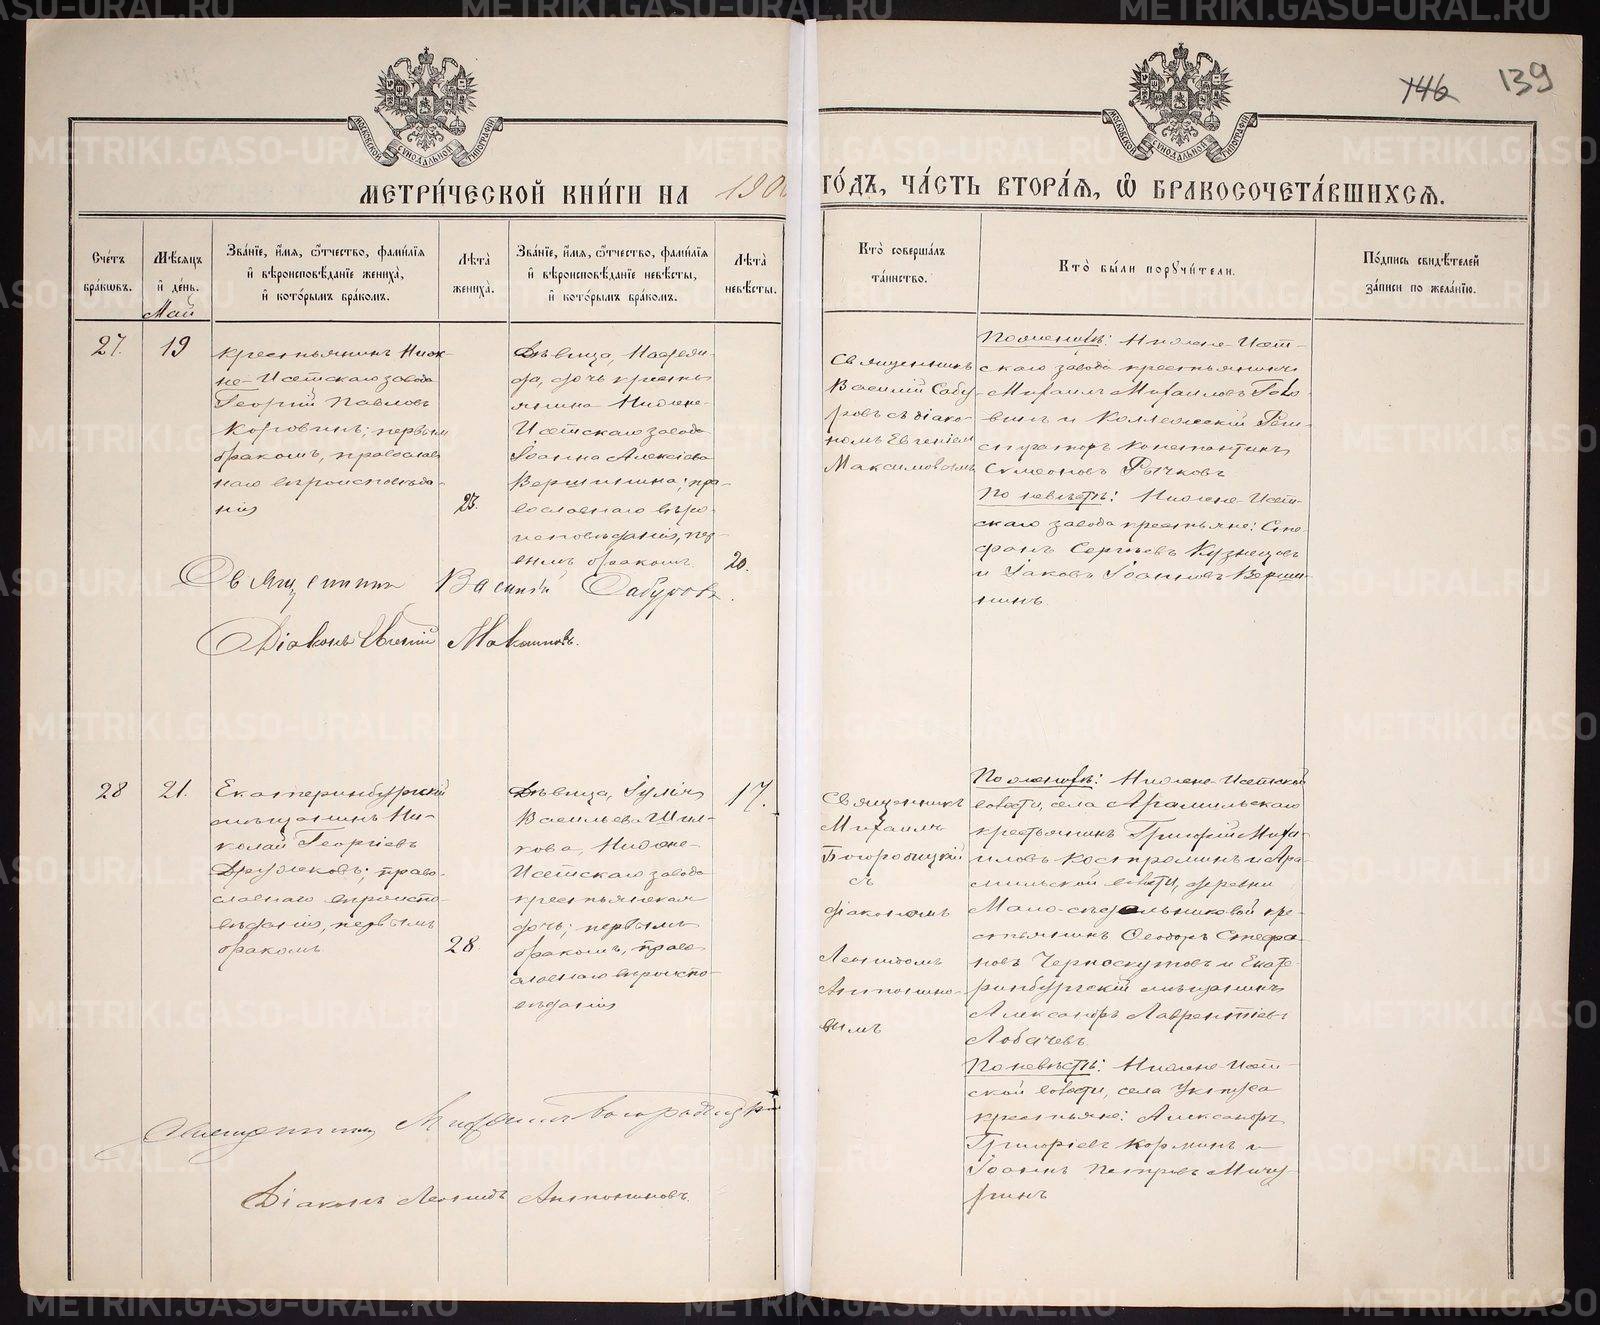 146 139
МОСКОВСКОЙ СѴНОДАЛЬНОЙ ТИПОГРАФІИ
МОСКОВСКОЙ СѴНОДАЛЬНОЙ ТИПОГРАФІИ
МЕТРИ́ЧЕСКОЙ КНИ́ГИ НА 190
ГО́ДЪ, ЧА́СТЬ ВТОРА́Ѧ, Ѽ БРАКОСОЧЕТА́ВШИХСѦ.
Сче́тъ бра́кѡвъ.
Мѣ́сѧцъ и҆ де́нь.
Май
Зва́нїе, и҆́мѧ, ѻ҆́тчество, фами́лїѧ
и҆ вѣроисповѣ́данїе жениха̀,
и҆ кото́рымъ бра́комъ.
Лѣ́та жениха̀.
Зва́нїе, и҆́мѧ, ѻ҆́тчество, фами́лїѧ
и҆ вѣроисповѣ́данїе невѣ́сты,
и҆ кото́рымъ бра́комъ.
Лѣ́та невѣ́сты.
Кто̀ соверша́лъ
та́инство.
Кто̀ бы́ли порꙋчи́тели.
По́дпись свидѣ́телей
за́писи по жела́нїю.
27.
19
Крестьянинъ Ниж-
не-Исетскаго завода
Георгій Павловъ
Коровинъ; первымъ
бракомъ, православ
наго вѣроисповѣда-
нія
Дѣвица,
дочь кресть
янина Нижне-
Исетскаго завода
Іоанна Алексіева
Вершинина; пра-
вославнаго вѣро-
исповѣданія, пер-
вымъ бракомъ
20.
Священникъ
Василій Сабу-
ровъ съ діако-
номъ Евгеніем
Максимовымъ
По женихѣ: Нижне-Исет-
скаго завода крестьянинъ
Михаилъ Михаиловъ
и Коллежскій Реги-
страторъ Константинъ
Симеоновъ Рычковъ
По невѣстѣ: Нижне-Исет-
скаго завода крестьяне: Сте-
фанъ Сергѣевъ Кузнецовъ
и Іаковъ Іоанновъ Верши-
нинъ
Священникъ Василій Сабуровъ.
Діаконъ Евгеній Максимовъ.
28
21.
Екатеринбургскій
мѣщанинъ Ни-
колай Георгіевъ
право-
славнаго вѣроиспо-
вѣданія, первымъ
бракомъ
28.
Дѣвица, Іулія
Васильева
Нижне-
Исетскаго завода
крестьянская
дочь; первымъ
бракомъ, право
славнаго вѣроиспо-
вѣданія
17.
Священникъ
Михаилъ
Богородицкій
съ
діакономъ
Леонидомъ
Антонино-
вымъ
По женихѣ: Нижне-Исетской
волости, села Арамильскаго
крестьянинъ Григорій Миха-
иловъ Костроминъ и Ара-
мильской волости, деревни
Мало-сѣдельниковой кре-
стьянинъ Ѳеодоръ Стефа
новъ Черноскутовъ и Екате-
ринбургскій мѣщанинъ
Александръ Лаврентіевъ
Лобачевъ
По невѣстѣ: Нижне-Исет-
ской волости, села Уктуса
крестьяне: Александръ
Григоріевъ Корминъ и
Іоаннъ Петровъ Мичу-
ринъ
Священникъ Михаилъ Богородицкій
Діаконъ Леонидъ Антониновъ.
METRIKI.GASO-URAL.RU